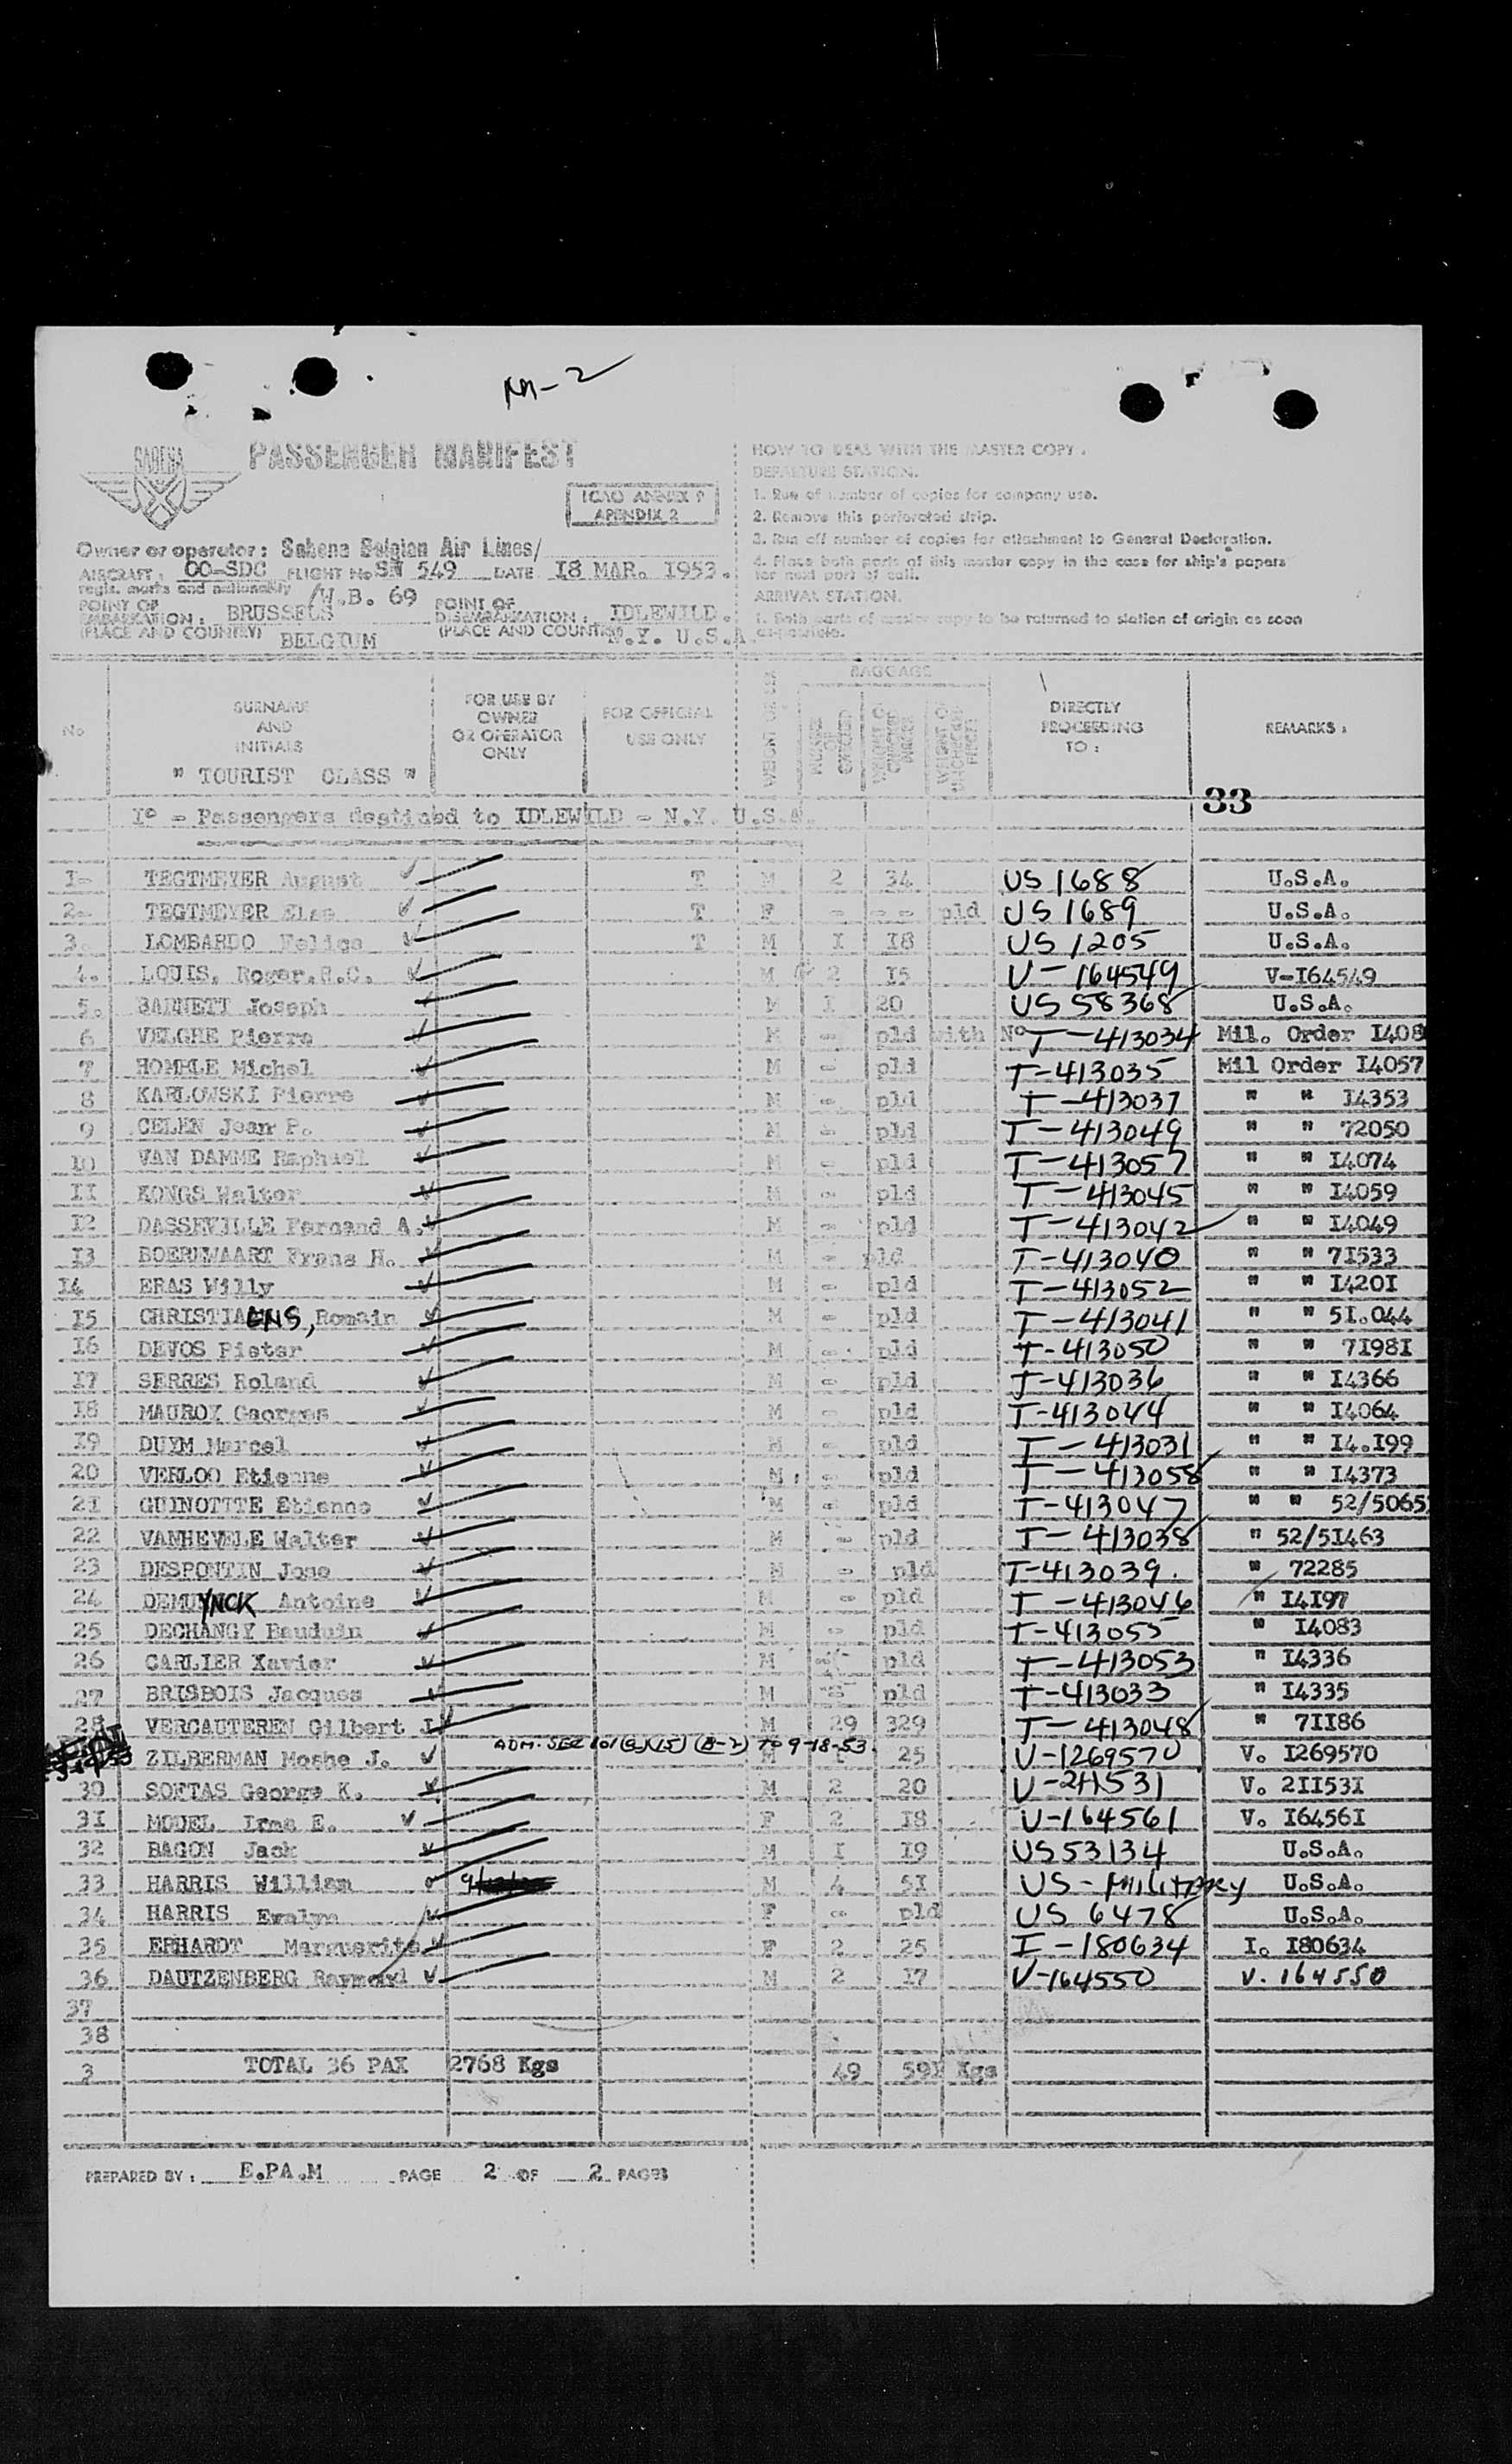 M-2
SABENA
PASSENGER MANIFEST
ICAO ANNEX 9
APENDIX 2
Owner or operator: Sabena Belgian Air Lines/
AIRCRAFT. OO-SDC FLIGHT No SN 549 DATE I8 MAR. I953.
regis. marks and nationality /W.B. 69
POINT OF EMBARKATION: BRUSSELS POINT OF DISEMBARKATION: IDLEWILD.
(PLACE AND COUNTRY) BELGIUM (PLACE AND COUNTRY) N.Y. U.S.A.
HOW TO DEAL WITH THE MASTER COPY.
DEPARTURE STATION.
1. Run of number of copies for company use.
2. Remove this perforated strip.
3. Run off number of copies for attachment to General Declaration.
4. Place both parts of this master copy in the case for ship's papers
for next port of call.
ARRIVAL STATION.
1. Both parts of master copy to be returned to station of origin as soon
as possible.
No SURNAME AND INITIALS FOR USE BY OWNER OR OPERATOR ONLY FOR OFFICIAL USE ONLY BAGGAGE DIRECTLY PROCEEDING TO: REMARKS:
" TOURIST CLASS "
33
I° - Passengers destined to IDLEWILD - N.Y. U.S.A.
1- TEGTMEYER August T M 2 34 US 1688 U.S.A.
2- TEGTMEYER Elsa T F - - - pld US 1689 U.S.A.
3. LOMBARDO Felice T M I I8 US 1205 U.S.A.
4. LOUIS, Roger.R.C. M 2 I5 V-164549 V-I64549
5. BARNETT Joseph M I 20 US 58368 U.S.A.
6 VELGHE Pierre M - pld with N° T-413034 Mil. Order I408
7 HOMBLE Michel M - pld T-413035 Mil Order I4057
8 KARLOWSKI Pierre M - pld T-413037 " " I4353
9 CELEN Jean P. M - pld T-413049 " " 72050
10 VAN DAMME Raphael M - pld T-413057 " " I4074
II KONGS Walter M - pld T-413045 " " I4059
I2 DASSEVILLE Fernand A. M - pld T-413042 " " I4049
I3 BOEREWAART Frans H. M - pld T-413040 " " 7I533
I4 ERAS Willy M - pld T-413052 " " I420I
I5 CHRISTIAENS, Romain M - pld T-413041 " " 5I.044
I6 DEVOS Pieter M - pld T-413050 " " 7I98I
I7 SERRES Roland M - pld T-413036 " " I4366
I8 MAUROY Georges M - pld T-413044 " " I4064
I9 DUYM Marcel M - pld T-413031 " " I4.I99
20 VERLOO Etienne M - pld T-413058 " " I4373
2I GUINOTTE Etienne M - pld T-413047 " " 52/5065
22 VANHEVELE Walter M - pld T-413038 " 52/5I463
23 DESPONTIN Jose M - pld T-413039. " 72285
24 DEMUYNCK Antoine M - pld T-413046 " I4I97
25 DECHANGY Bauduin M - pld T-413055 " I4083
26 CARLIER Xavier M - pld T-413053 " I4336
27 BRISBOIS Jacques M - pld T-413033 " I4335
28 VERCAUTEREN Gilbert J. M 29 329 T-413048 " 7II86
ADM. SEC 101(a)(15) (B-2) TO 9-18-53.
ZILBERMAN Moshe J. M 25 V-1269570 V. I269570
30 SOFTAS George K. M 2 20 V-211531 V. 2II53I
3I MODEL Irma E. F 2 I8 V-164561 V. I6456I
32 BAGON Jack M I I9 US 53134 U.S.A.
33 HARRIS William M 4 5I US-MILITARY U.S.A.
34 HARRIS Evelyn F - pld US 6478 U.S.A.
35 EPHARDT Marguerite F 2 25 I-180634 I. I80634
36 DAUTZENBERG Raymond M 2 I7 V-164550 V. 164550
37
38
3 TOTAL 36 PAX 2768 Kgs 49 59I Kgs
PREPARED BY: E.PA.M PAGE 2 OF 2 PAGES